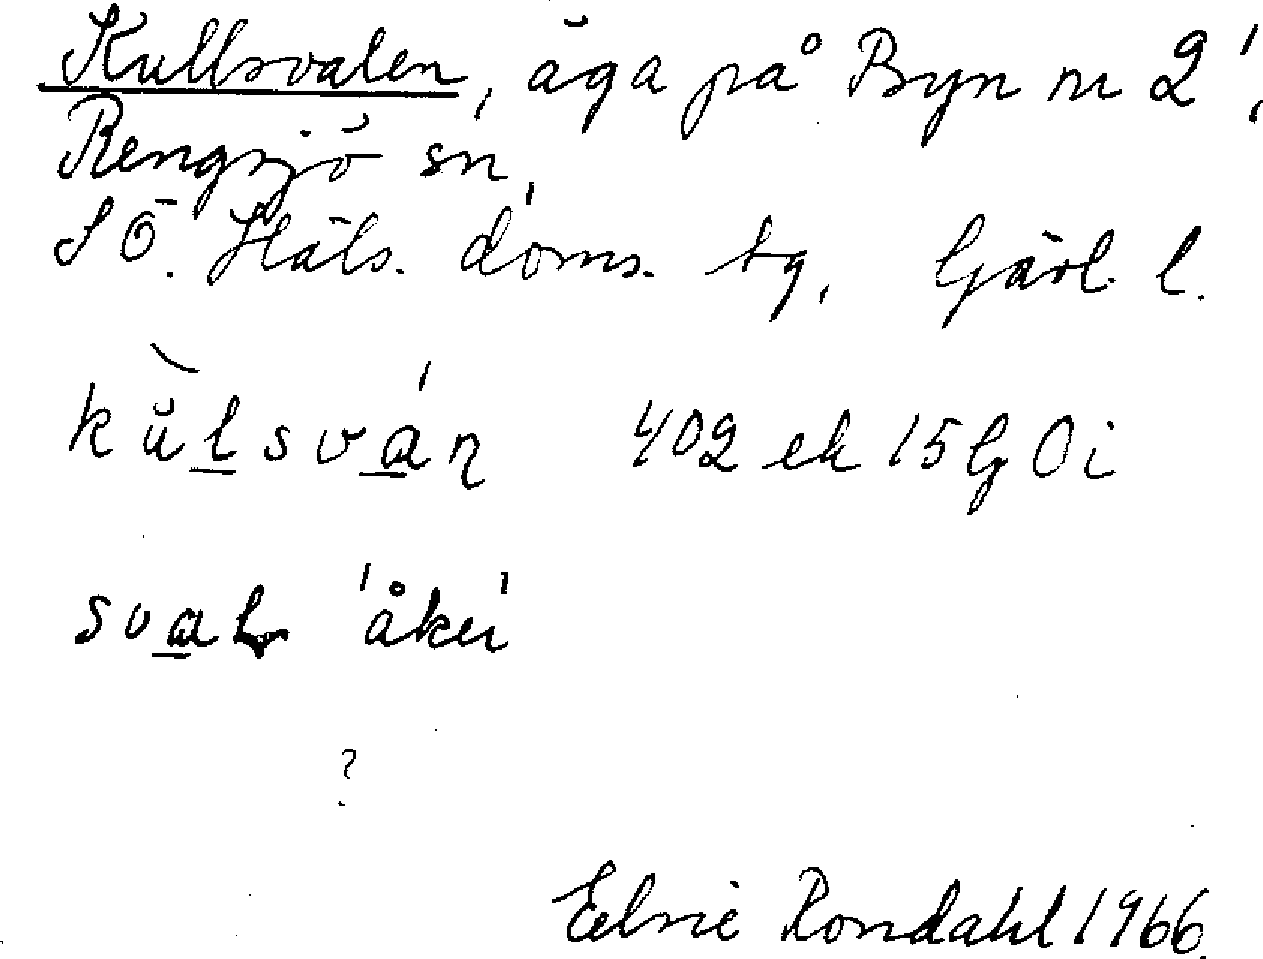 Kullsvalen, äga på Byn nr 2¹,
Rengsjö sn,
SÖ. Häls. doms. tg, Gävl. l.
kùlsván 402 ek 15 G Oi
sval 'åker'
?
Elsie Rondahl 1966.